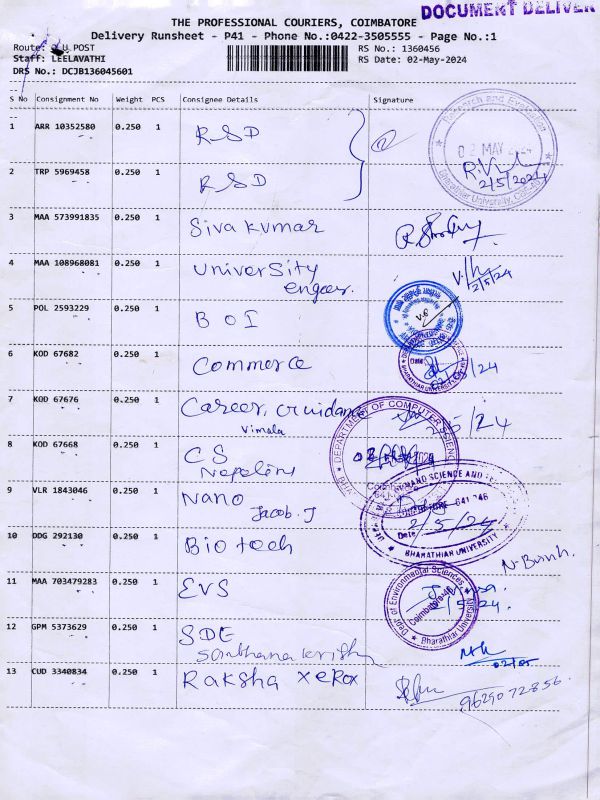 DOCUMENT DELIVER
THE PROFESSIONAL COURIERS, COIMBATORE
Delivery Runsheet - P41 - Phone No.:0422-3505555 - Page No.:1
Route: G U POST
RS No.: 1360456
Staff: LEELAVATHI
RS Date: 02-May-2024
DRS No.: DCJB136045601
S No Consignment No Weight PCS Consignee Details Signature
1 ARR 10352580 0.250 1 RSD
Research and Evaluation
02 MAY 2024
Bharathiar University
2/5/2024
2 TRP 5969458 0.250 1 RSD
3 MAA 573991835 0.250 1 Sivakumar
4 MAA 108968081 0.250 1 University
2/5/24
5 POL 2593229 0.250 1 BOI
6 KOD 67682 0.250 1 Commerce
BHARATHIAR UNIVERSITY
7 KOD 67676 0.250 1 Career Guidance
Vimala
DEPARTMENT OF COMPUTER SCIENCE
8 KOD 67668 0.250 1 CS
Nepoleons
9 VLR 1843046 0.250 1 NANO
Jacob. J
NANO SCIENCE AND
641 046
Date 2/5/24
BHARATHIAR UNIVERSITY
10 DDG 292130 0.250 1 Bio tech
11 MAA 703479283 0.250 1 EVS
Dept of Environmental Sciences
Coimbatore-46
Bharathiar University
12 GPM 5373629 0.250 1 SDE
02/05
13 CUD 3340834 0.250 1 Raksha xeRox
9629072856